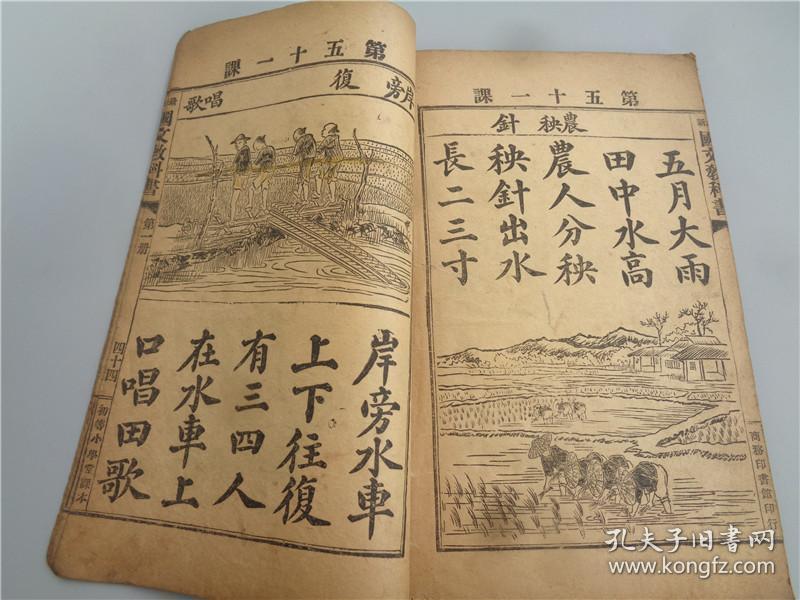 第五十一課
農秧 針
五月大雨
田中水高
農人分秧
秧針出水
長二三寸
國文教科書
商務印書館印行
第五十一課
岸旁 復 唱歌
岸旁水車
上下往復
有三四人
在水車上
口唱田歌
國文教科書
第一册
四十四
初等小學堂課本
孔夫子旧书网
www.kongfz.com